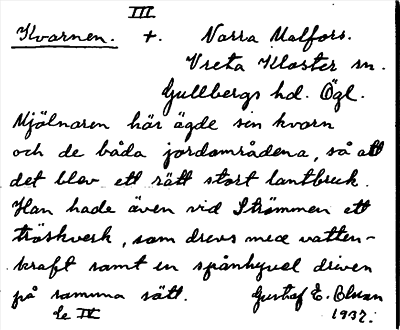 III
Kvarnen. +. Norra Malfors.
Vreta Kloster sn.
Gullbergs hd. Ögl.
Mjölnaren här ägde sin kvarn
och de båda jordområdena, så att
det blev ett rätt stort lantbruk.
Han hade även vid Strömmen ett
tröskverk, som drevs med vatten-
kraft samt en spånhyvel driven
på samma sätt. Gustaf E. Olsson
se IV 1937.